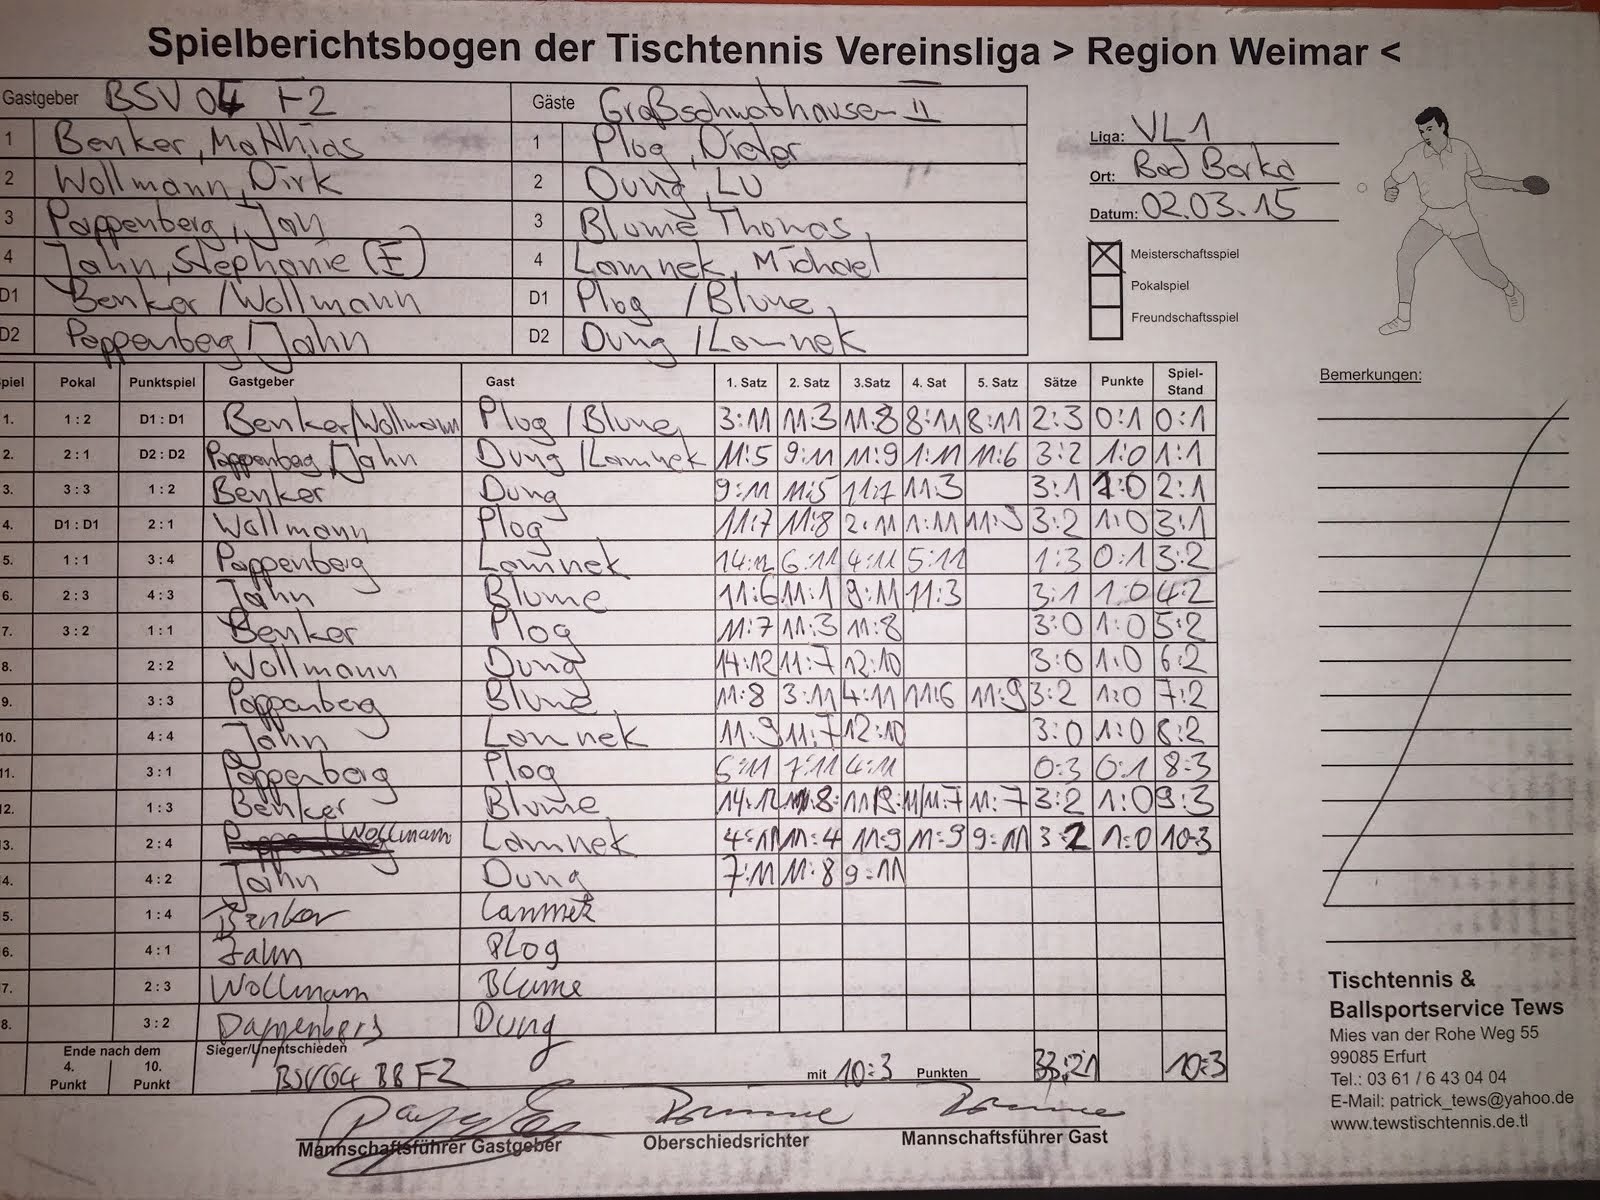 Spielberichtsbogen der Tischtennis Vereinsliga > Region Weimar <
Gastgeber BSV 04 F2 Gäste Großschwabhausen II
1 Benker, Matthias 1 Plog, Dieter
2 Wollmann, Dirk 2 Dung, LU
3 Pappenberg, Jan 3 Blume Thomas
4 Jahn, Stephanie (E) 4 Lamnek, Michael
D1 Benker / Wollmann D1 Plog / Blume
D2 Pappenberg / Jahn D2 Dung / Lamnek
Liga: VL1
Ort: Bad Berka
Datum: 02.03.15
Meisterschaftsspiel
Pokalspiel
Freundschaftsspiel
Bemerkungen:
piel Pokal Punktspiel Gastgeber Gast 1. Satz 2. Satz 3.Satz 4. Sat 5. Satz Sätze Punkte Spiel-Stand
1. 1 : 2 D1 : D1 Benker/Wollmann Plog / Blume 3:11 11:3 11:8 8:11 8:11 2:3 0:1 0:1
2. 2 : 1 D2 : D2 Pappenberg / Jahn Dung / Lamnek 11:5 9:11 11:9 1:11 11:6 3:2 1:0 1:1
3. 3 : 3 1 : 2 Benker Dung 9:11 11:5 11:7 11:3 3:1 1:0 2:1
4. D1 : D1 2 : 1 Wollmann Plog 11:7 11:8 2:11 1:11 3:2 1:0 3:1
5. 1 : 1 3 : 4 Pappenberg Lamnek 14:12 6:11 4:11 5:11 1:3 0:1 3:2
6. 2 : 3 4 : 3 Jahn Blume 11:6 11:1 9:11 11:3 3:1 1:0 4:2
7. 3 : 2 1 : 1 Benker Plog 11:7 11:3 11:8 3:0 1:0 5:2
8. 2 : 2 Wollmann Dung 14:12 11:7 12:10 3:0 1:0 6:2
9. 3 : 3 Pappenberg Blume 11:8 3:11 4:11 11:6 11:9 3:2 1:0 7:2
10. 4 : 4 Jahn Lamnek 11:9 11:7 12:10 3:0 1:0 8:2
11. 3 : 1 Pappenberg Plog 7:11 4:11 0:3 0:1 8:3
12. 1 : 3 Benker Blume 14:12 11:7 11:7 3:2 1:0 9:3
3. 2 : 4 Wollmann Lamnek 4:11 11:4 11:9 11:9 9:11 3:2 1:0 10:3
4. 4 : 2 Jahn Dung 7:11 11:8 9:11
5. 1 : 4 Benker Lammek
6. 4 : 1 Jahn Plog
7. 2 : 3 Wollmann Blume
8. 3 : 2 Pappenberg Dung
Ende nach dem
4. Punkt 10. Punkt
Sieger/Unentschieden
BSV04 BB F2 mit 10:3 Punkten 33:21 10:3
Mannschaftsführer Gastgeber Oberschiedsrichter Mannschaftsführer Gast
Tischtennis &
Ballsportservice Tews
Mies van der Rohe Weg 55
99085 Erfurt
Tel.: 03 61 / 6 43 04 04
E-Mail: patrick_tews@yahoo.de
www.tewstischtennis.de.tl